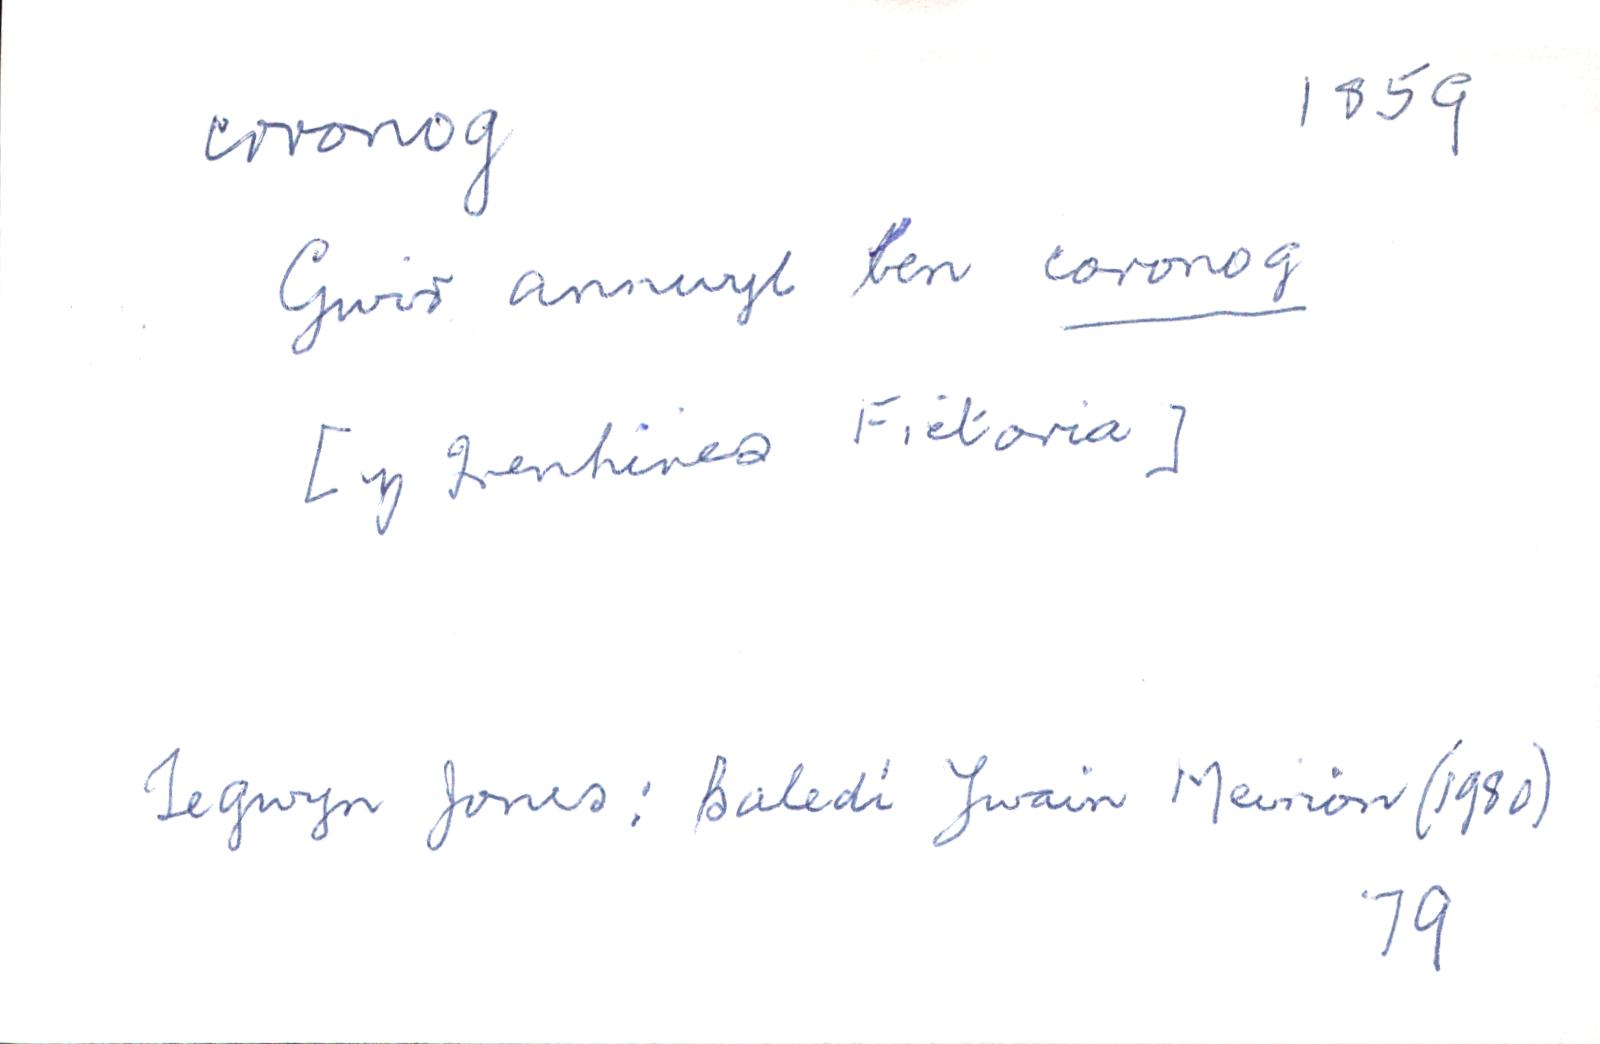 coronog 1859
Gwir annwyl ben coronog
[y Frenhines Fictoria]
Tegwyn Jones: Baledi Ywain Meirion (1980)
79